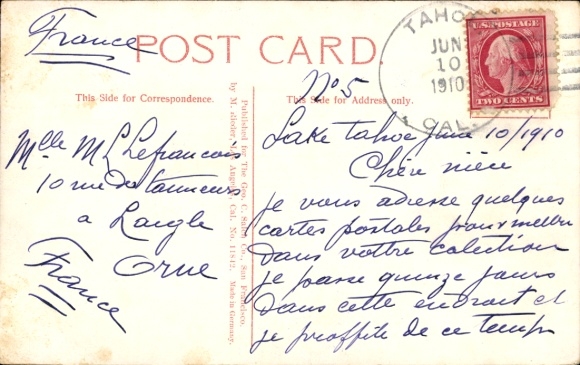 France
POST CARD
TAHOE
JUN
10
1910
CAL.
U.S. POSTAGE
TWO CENTS
No 5
This Side for Correspondence.
This Side for Address only.
Mlle M L Lefrancois
10 rue de tanneurs
a Laigle
Orne
France
Published for The Geo. C. San Francisco.
by M. Rieder, Los Angeles, Cal. No. 11842. Made in Germany.
Lake Tahoe June 10/1910
Chère nièce
je vous adresse quelques
cartes postales pour mettre
dans votre colection
je passe quinze jours
dans cette endroit et
je proffite de ce temps